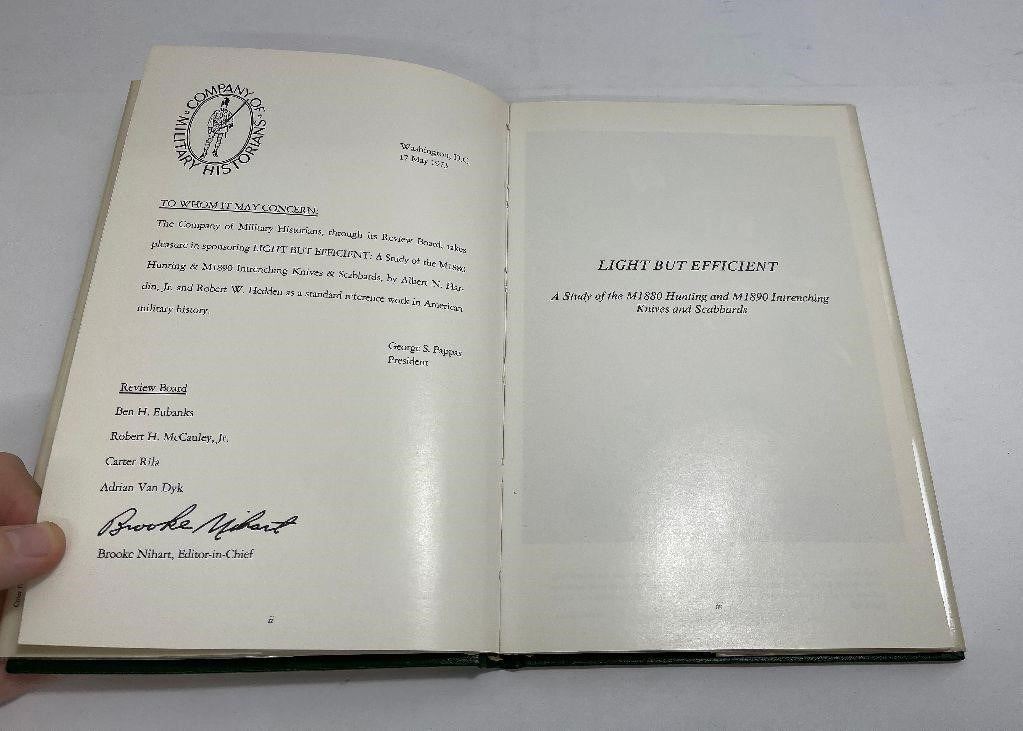 COMPANY OF
MILITARY HISTORIANS
Washington, D.C.
17 May 1973
TO WHOM IT MAY CONCERN:
The Company of Military Historians, through its Review Board, takes
pleasure in sponsoring LIGHT BUT EFFICIENT: A Study of the M1880
Hunting & M1890 Intrenching Knives & Scabbards, by Albert N. Har-
din, Jr. and Robert W. Hedden as a standard reference work in American
military history.
George S. Pappas
President
Review Board
Ben H. Eubanks
Robert H. McCauley, Jr.
Carter Rila
Adrian Van Dyk
Brooke Nihart
Brooke Nihart, Editor-in-Chief
ii
LIGHT BUT EFFICIENT
A Study of the M1880 Hunting and M1890 Intrenching
Knives and Scabbards
iii